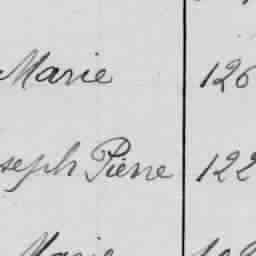 Marie 126
seph Pierre 122
Marie